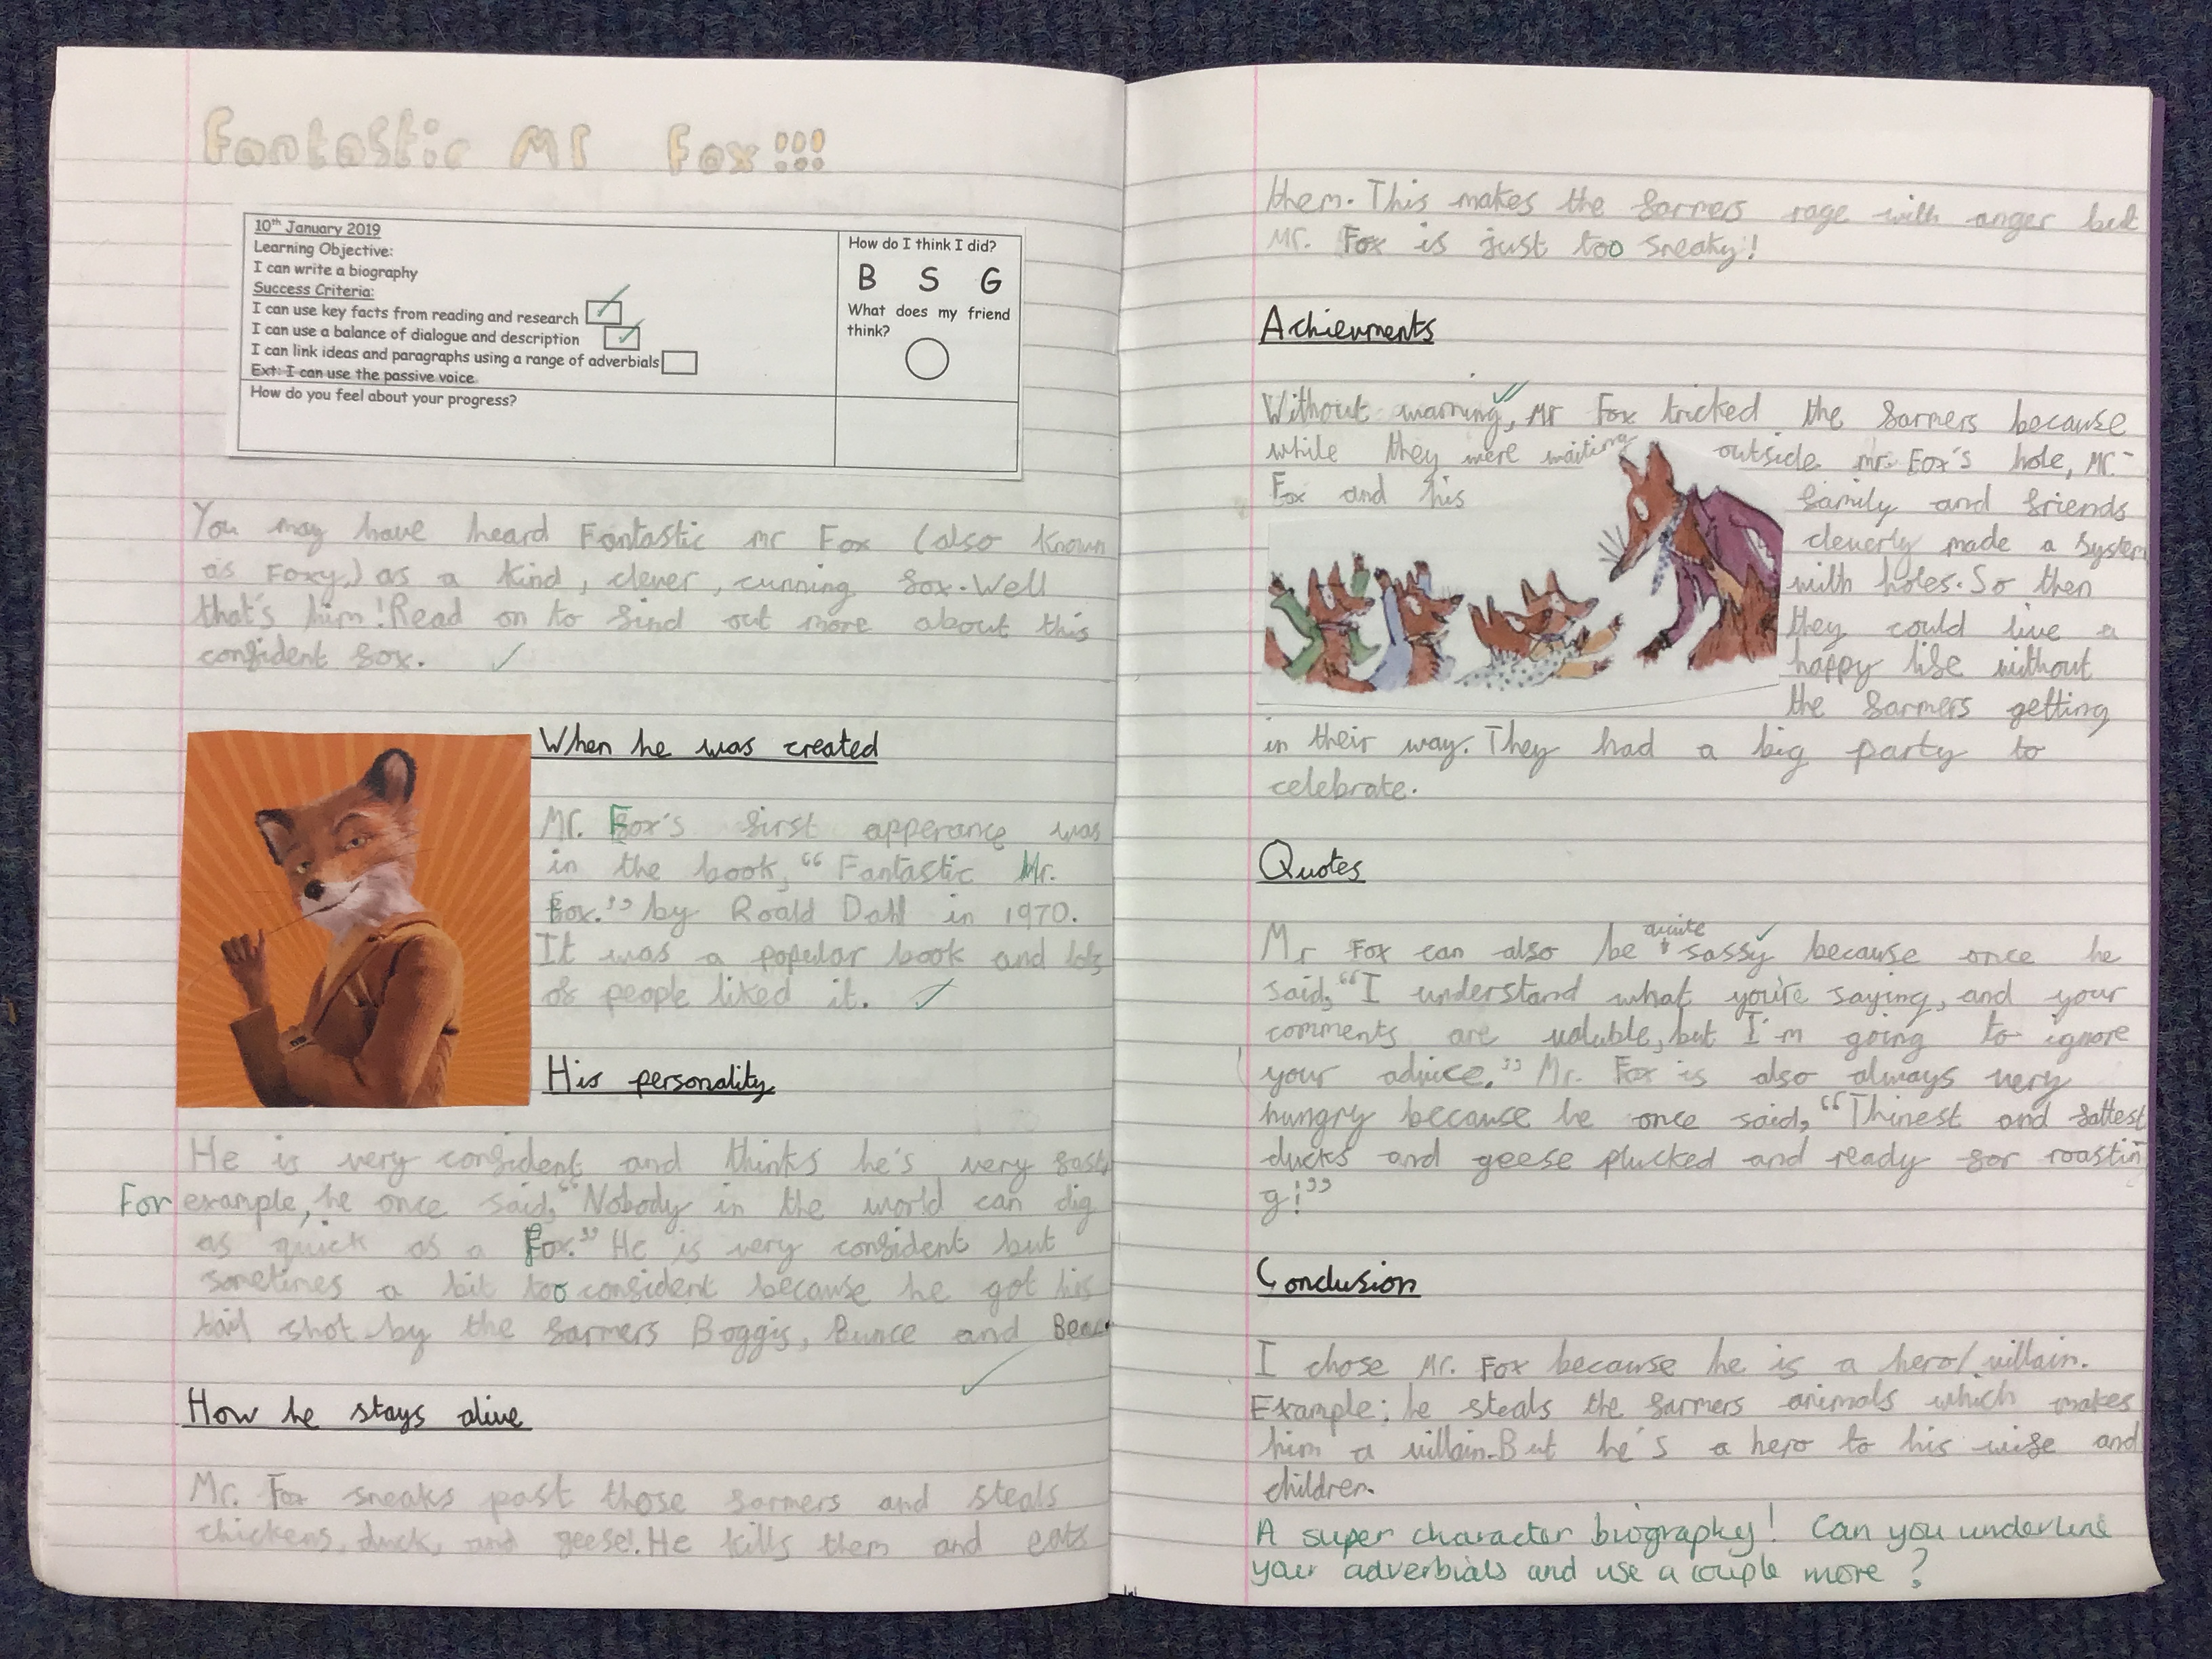 Fantastic Mr Fox!!!
10th January 2019
Learning Objective:
I can write a biography
Success Criteria:
I can use key facts from reading and research
I can use a balance of dialogue and description
I can link ideas and paragraphs using a range of adverbials
Ext: I can use the passive voice
How do you feel about your progress?
How do I think I did?
B S G
What does my friend
think?
You may have heard Fantastic mr Fox (also known
as Foxy,) as a kind, clever, cunning fox. Well
that's him! Read on to find out more about this
confident fox.
When he was created
Mr. Fox's first apperance was
in the book, "Fantastic Mr.
Fox." by Roald Dahl in 1970.
It was a popular book and lots
of people liked it.
His personality
He is very confident and thinks he's very fast,
For example, he once said, "Nobody in the world can dig
as quick as a Fox." He is very confident but
sometimes a bit too confident because he got his
tail shot by the farmers Boggis, Bunce and Bean
How he stays alive
Mr. Fox sneaks past those farmers and steals
chickens, duck, and geese!. He kills them and eats
them. This makes the farmers rage with anger but
Mr. Fox is just too sneaky!
Achievments
Without warning, Mr Fox tricked the farmers because
while they were waiting outside mr. Fox's hole, Mr.
Fox and his family and friends
cleverly made a system
with holes. So then
they could live a
happy life without
the farmers getting
in their way. They had a big party to
celebrate.
Quotes
Mr Fox can also be quite sassy because once he
said, "I understand what you're saying, and your
comments are valuble, but I'm going to ignore
your advice." Mr. Fox is also always very
hungry because he once said, "Thinest and fattest
ducks and geese plucked and ready for roastin
g!"
Conclusion
I chose Mr. Fox because he is a hero/villain.
Example; he steals the farmers animals which makes
him a villain. But he's a hero to his wife and
children.
A super character biography! Can you underline
your adverbials and use a couple more?